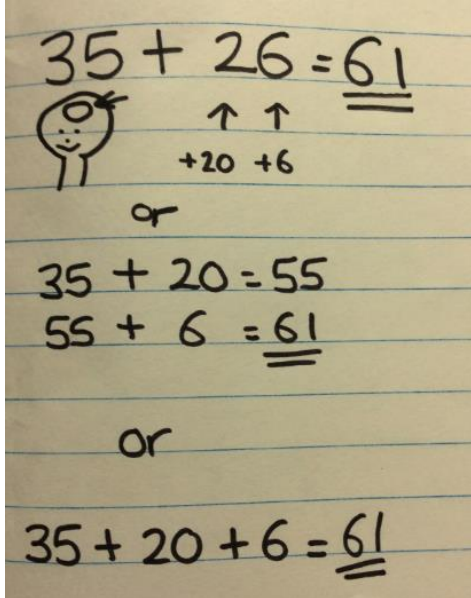 35 + 26 = 61
↑ ↑
+20 +6
or
35 + 20 = 55
55 + 6 = 61
or
35 + 20 + 6 = 61